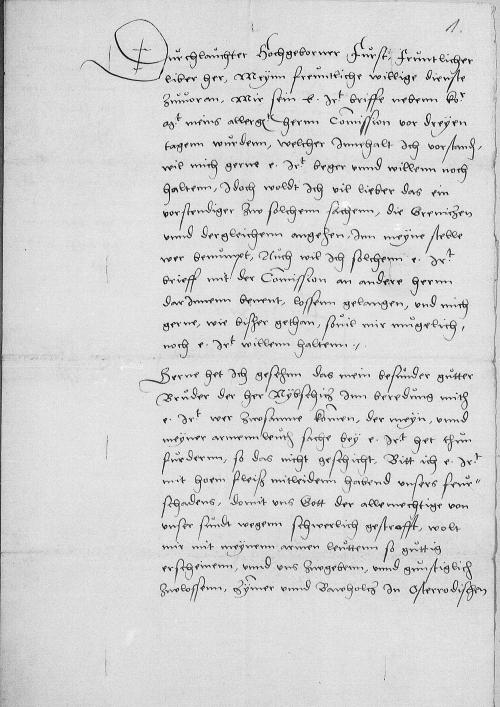 1.
Durchlauchter Hochgeborner Furst, fruntlicher
liber her, Meynn freuntliche willige dienste
zuuoran, Mir sein e. Irt briffe nebenn kor
agt meins allergt herrnn Comission vor dreyen
tagenn wurdenn, welcher Innehalt Ich vorstandn,
wil mich gerne e. Irt beger vnnd willenn noch
haltenn, Idoch woldt Ich vil lieber das ein
vorstendiger zw solchenn sachenn, die Grenitzen
vnnd dergleichenn angehen, Inn meyne stelle
wer benumpt, Auch wil Ich solchenn e. Irt
brieff mit der Comission an andere herrnn
darInnenn benent, lossenn gelangen, vnd mich
gerne, wie bisher gethan, souil mir mugelich,
noch e. Irt willenn haltenn.
Gerne het Ich gesehnn das mein besunder gutter
Bruder der her Nybschitz Inn beredung mith
e. Irt wer zwsamne komen, der meyn, vnnd
meyner armenn leuth sache bey e. Irt het thun
fuedernn, so das nicht geschicht, Bitt ich e. Irt
mit hoem fleiß mitleidenn habend vnsers feur-
schadens, domit vns Gott der allmechtige von
vnser sundt wegenn schwerlich gestrafft, wolt
mir mit meynenn armen leuttenn so guttig
erscheinenn, vnnd vns zwgebenn, vnnd gunstiglich
zwlossenn, Zymer vnnd Bawholtz In Osterrodischen